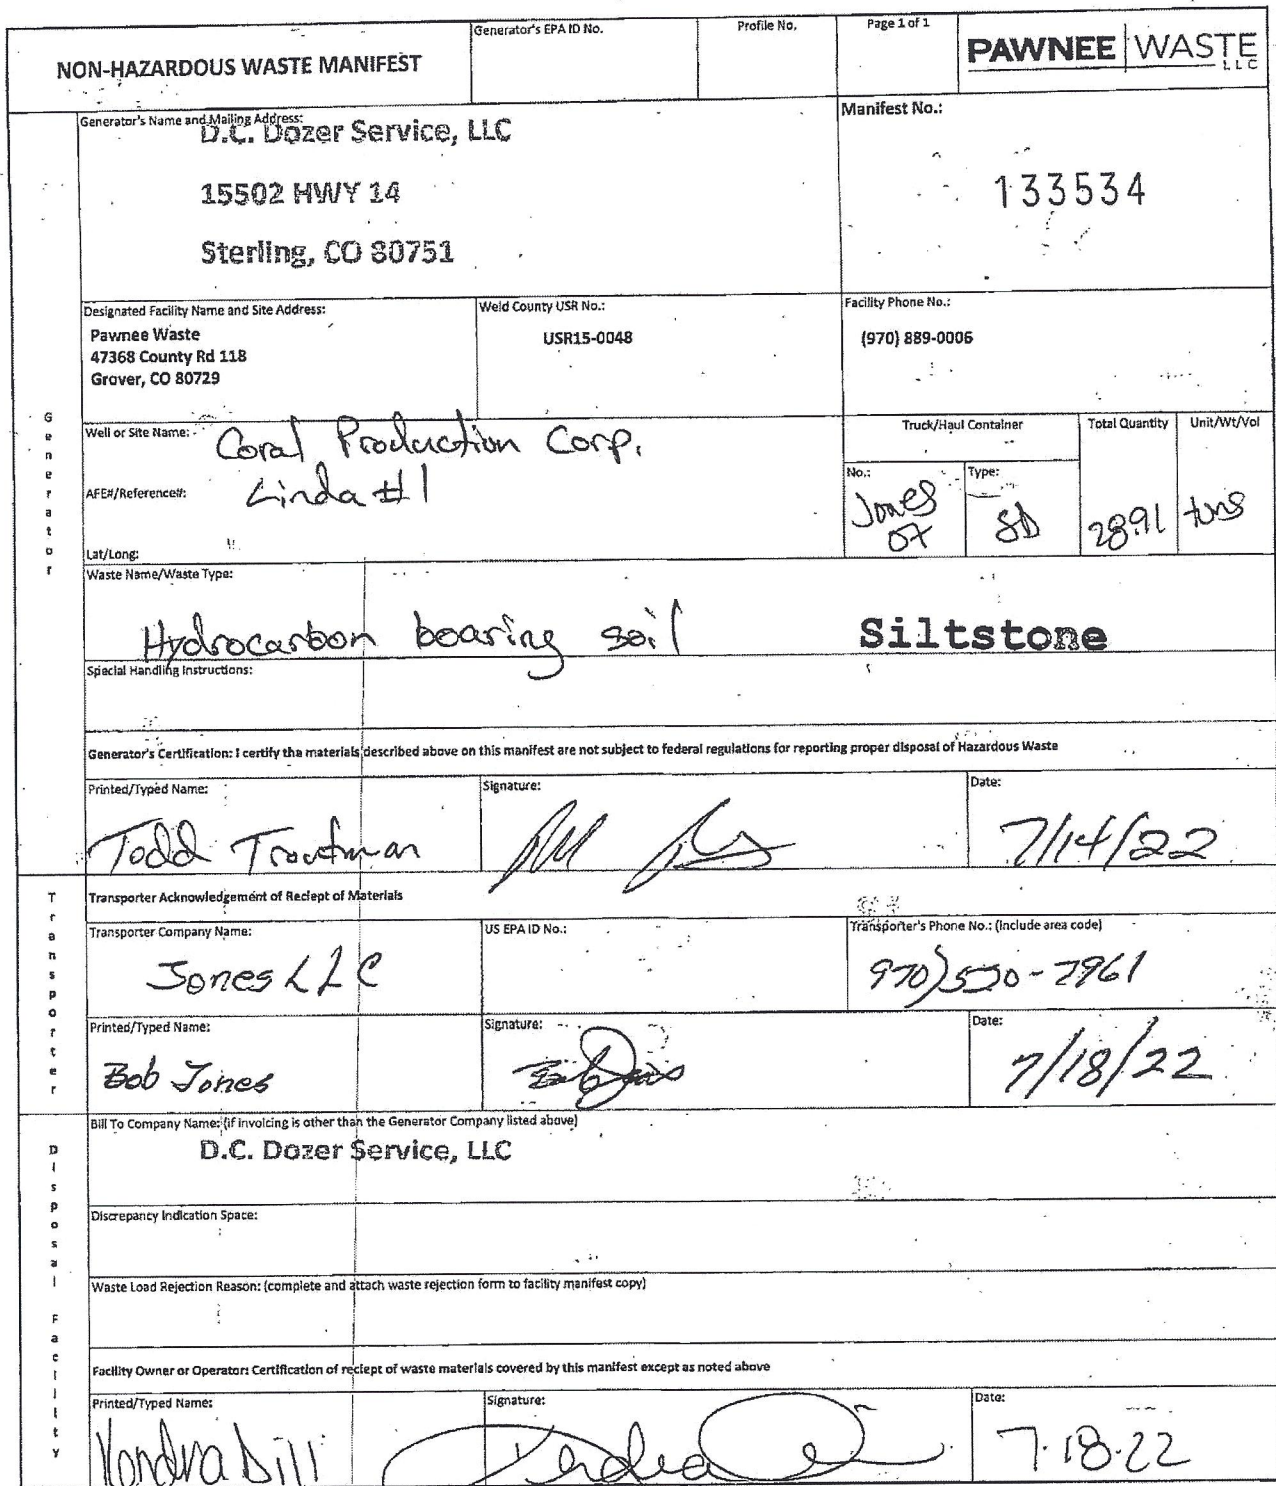 NON-HAZARDOUS WASTE MANIFEST
Generator's EPA ID No.
Profile No.
Page 1 of 1
PAWNEE WASTE LLC
Generator's Name and Mailing Address:
D.C. Dozer Service, LLC
15502 HWY 14
Sterling, CO 80751
Manifest No.:
133534
Designated Facility Name and Site Address:
Pawnee Waste
47368 County Rd 118
Grover, CO 80729
Weld County USR No.:
USR15-0048
Facility Phone No.:
(970) 889-0006
Generator
Well or Site Name: Coral Production Corp.
AFE#/Reference#: Linda #1
Lat/Long:
Truck/Haul Container
No.:
Jones
07
Type:
SD
Total Quantity
28.91
Unit/Wt/Vol
tons
Waste Name/Waste Type:
Hydrocarbon bearing soil Siltstone
Special Handling Instructions:
Generator's Certification: I certify the materials described above on this manifest are not subject to federal regulations for reporting proper disposal of Hazardous Waste
Printed/Typed Name:
Todd Troutman
Signature:
Date:
7/14/22
Transporter
Transporter Acknowledgement of Reciept of Materials
Transporter Company Name:
Jones LLC
US EPA ID No.:
Transporter's Phone No.: (include area code)
970)520-7961
Printed/Typed Name:
Bob Jones
Signature:
Bob Jones
Date:
7/18/22
Disposal Facility
Bill To Company Name: (if invoicing is other than the Generator Company listed above)
D.C. Dozer Service, LLC
Discrepancy Indication Space:
Waste Load Rejection Reason: (complete and attach waste rejection form to facility manifest copy)
Facility Owner or Operator: Certification of reciept of waste materials covered by this manifest except as noted above
Printed/Typed Name:
Kendra Dill
Signature:
Kendra
Date:
7-18-22